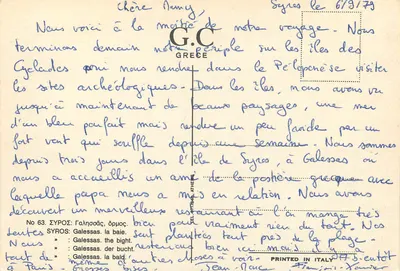 Chère Mumy, Syros le 6/9/79
Nous voici à la moitié de notre voyage. Nous
G.C
GREECE
terminons demain notre périple sur les îles des
Cyclades pour nous rendre dans le Péloponèse visiter
les sites archéologiques. Dans les îles, nous avons vu
jusqu'à maintenant de beaux paysages, une mer
d'un bleu parfait mais rendue un peu froide par un
fort vent qui souffle depuis une semaine. Nous sommes
depuis trois jours dans l'île de Syros, à Galessos où
nous a accueillis un ami de la postière grecque avec
laquelle papa nous a mis en relation. Nous avons
découvert un merveilleux restaurant où l'on mange très
bien pour vraiment rien du tout. Nos
No 63. ΣΥΡΟΣ: Γαλησσάς, όρμος.
SYROS: Galessas. la baie.
Galessas. the bight.
Galessas. der bucht.
Galessas. la baid.
tentes sont plantées tout près de la plage.
PRINTED IN ITALY
Nous
bien ici mais
tout de même d'autres choses à voir.
à Paris
Jean-Marc